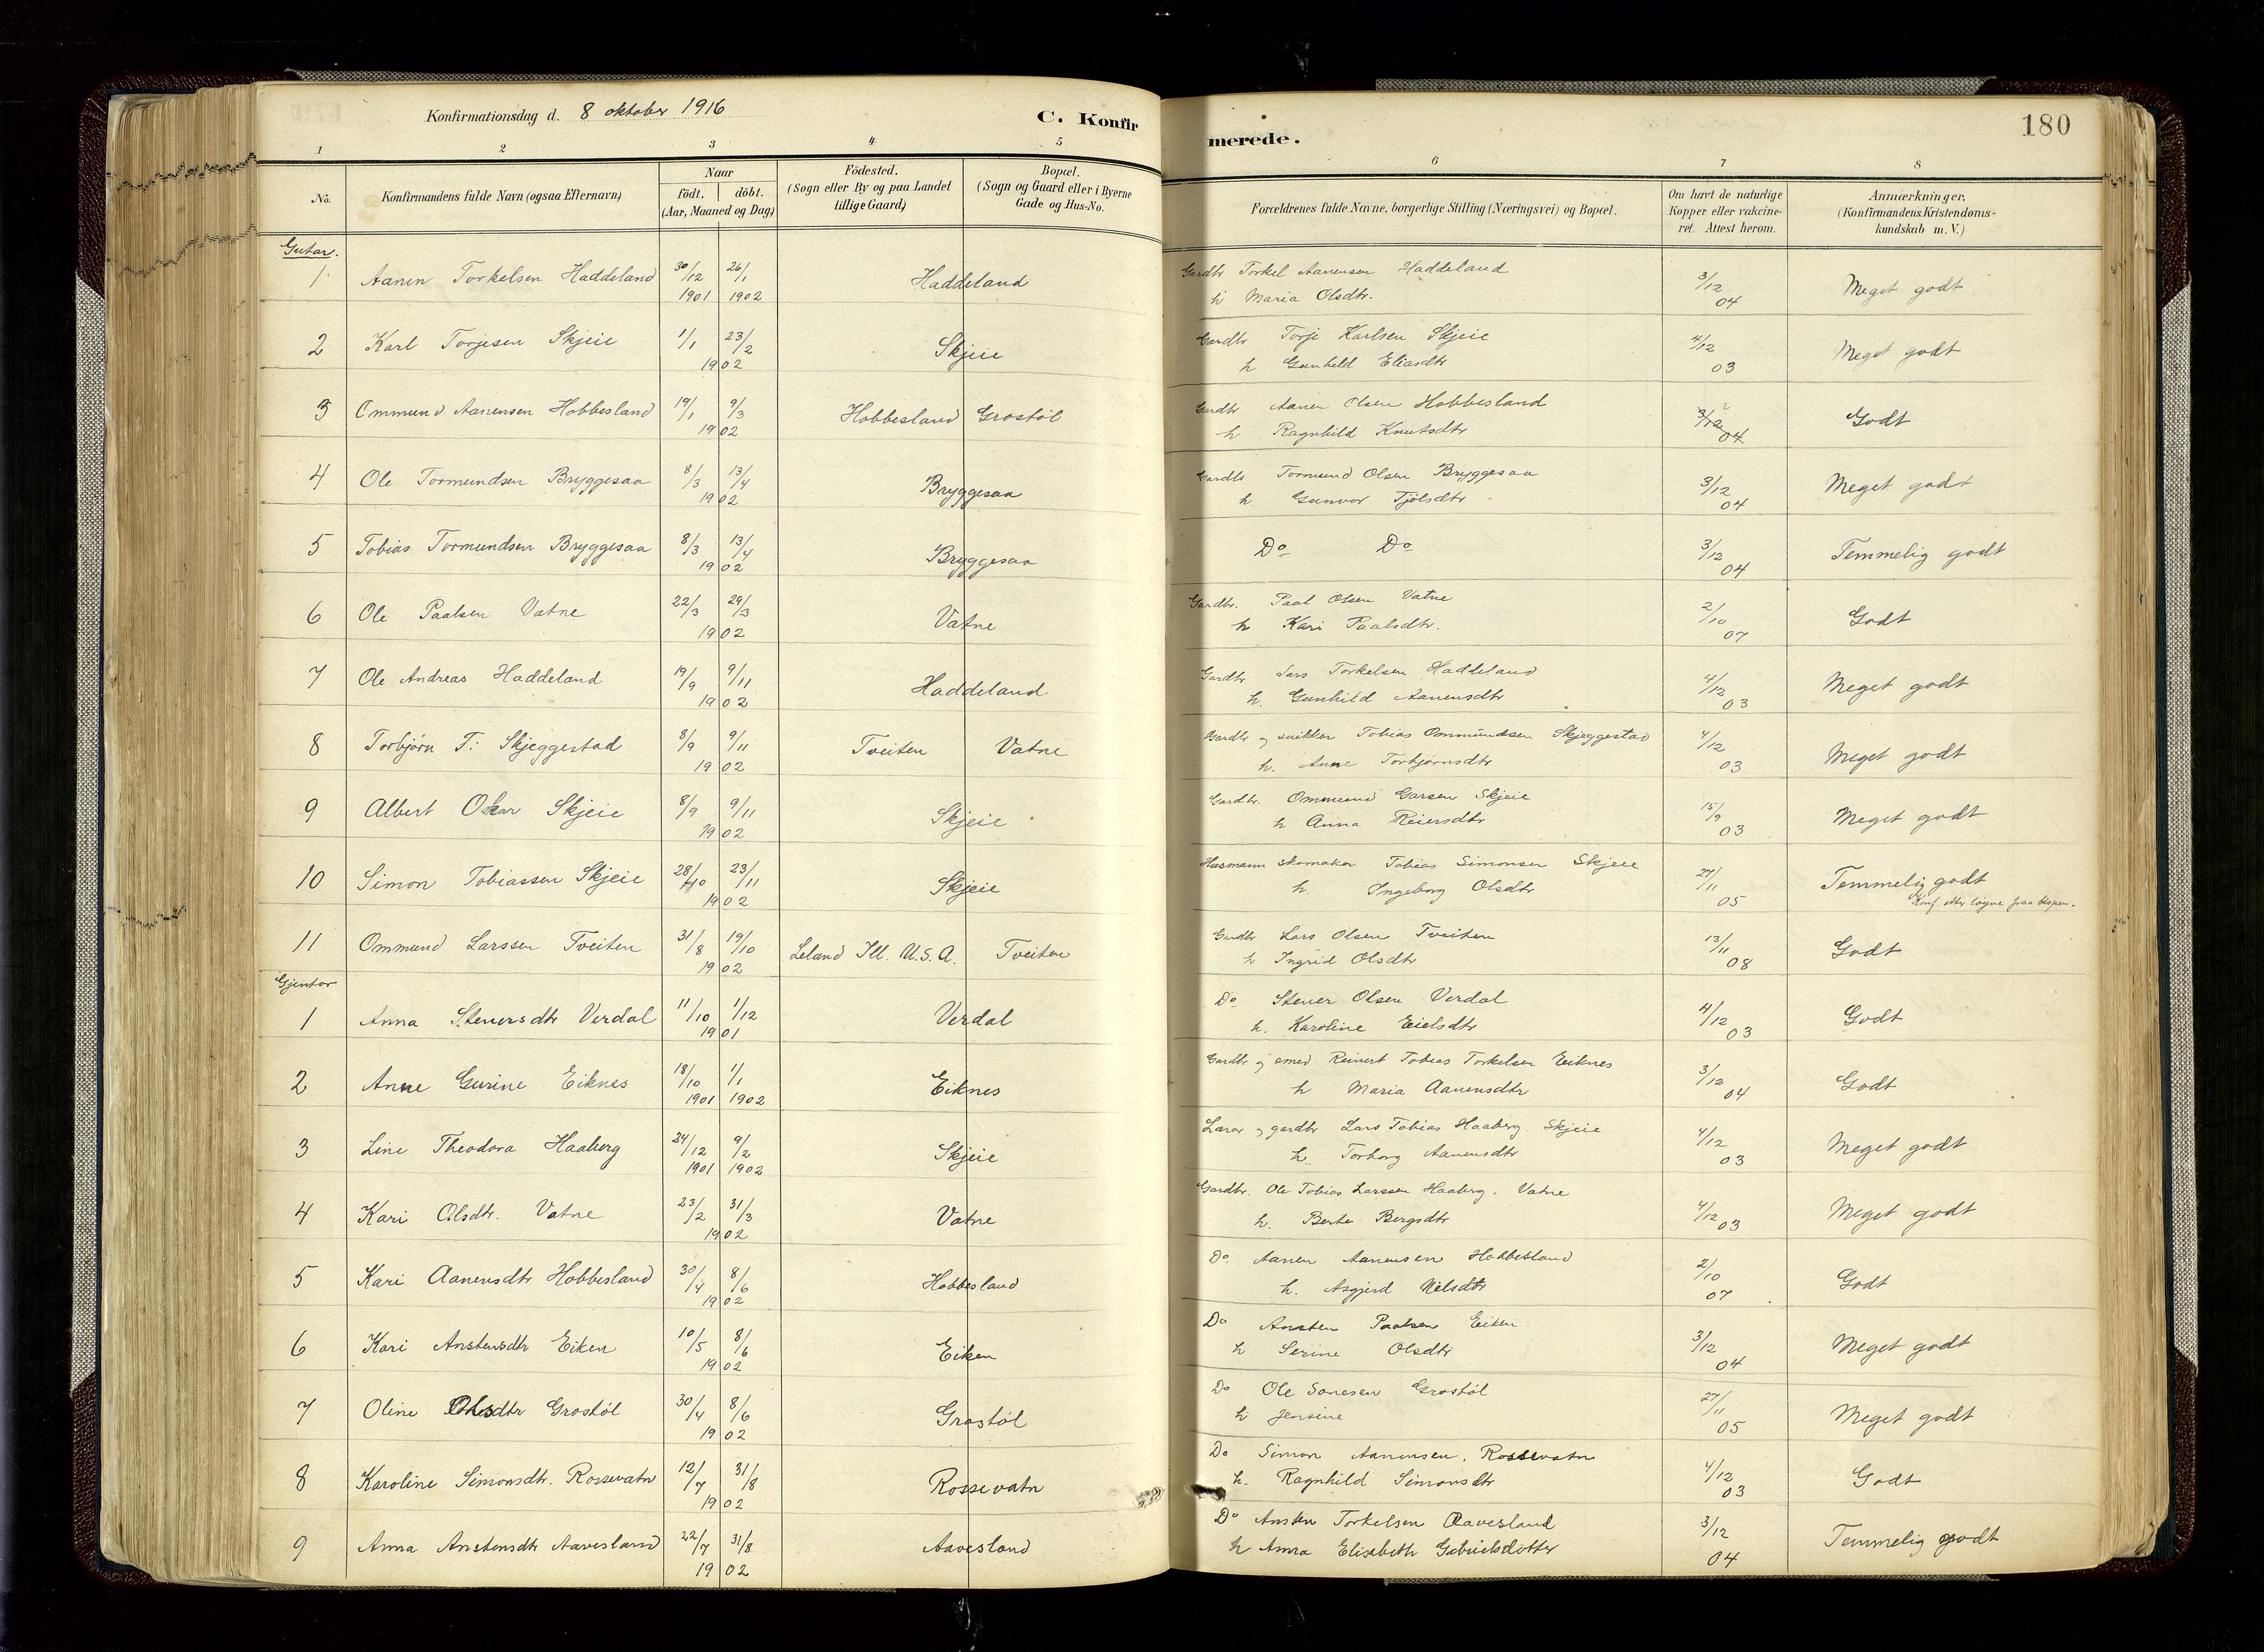 Konfirmationsdag d. 8 oktober 1916
C. Konfirmerede.
180
1 2 3 4 5 6 7 8
No.
Konfirmandens fulde Navn (ogsaa Efternavn)
Naar
födt. döbt.
(Aar, Maaned og Dag)
Födested.
(Sogn eller By og paa Landet
tillige Gaard)
Bopæl.
(Sogn og Gaard eller i Byerne
Gade og Hus-No.
Forældrenes fulde Navne, borgerlige Stilling (Næringsvei) og Bopæl.
Om havt de naturlige
Kopper eller vakcine-
ret. Attest herom.
Anmærkninger.
(Konfirmandens Kristendoms-
kundskab m. V.)
Gutar.
1 Aanen Torkelsen Haddeland 30/12 1901 26/1 1902 Haddeland Gardbr Torkel Aanensen Haddeland 3/12 04 Meget godt
h Maria Olsdtr.
2 Karl Torjesen Skjeie 1/1 23/2 1902 Skjeie Gardbr Torje Karlsen Skjeie 4/12 03 Meget godt
h Gunhild Eliasdtr
3 Ommund Aanensen Hobbesland 19/1 9/3 1902 Hobbesland Grostöl Gardbr Aanen Olsen Hobbesland 3/12 04 Godt
h Ragnhild Knutsdtr
4 Ole Tormundsen Bryggesaa 8/3 13/4 1902 Bryggesaa Gardbr Tormund Olsen Bryggesaa 3/12 04 Meget godt
h Gunvor Tjölsdtr
5 Tobias Tormundsen Bryggesaa 8/3 13/4 1902 Bryggesaa Do Do 3/12 04 Temmelig godt
6 Ole Paalsen Vatne 22/3 29/3 1902 Vatne Gardbr. Paal Olsen Vatne 2/10 07 Godt
h Kari Paalsdtr.
7 Ole Andreas Haddeland 19/9 9/11 1902 Haddeland Gardbr Lars Torkelsen Haddeland 4/12 03 Meget godt
h. Gunhild Aanensdtr
8 Torbjörn T: Skjeggestad 8/9 9/11 1902 Tveiten Vatne Gardbr og snikkar Tobias Ommundsen Skjeggestad 4/12 03 Meget godt
h. Anne Torbjørnsdtr
9 Albert Oskar Skjeie 8/9 9/11 1902 Skjeie Gardbr. Ommund Garsen Skjeie 15/9 03 Meget godt
h Anna Reiersdtr
10 Simon Tobiassen Skjeie 28/10 23/11 1902 Skjeie Husmann skomaker Tobias Simonsen Skjeie 27/11 05 Temmelig godt
h. Ingeborg Olsdtr Konf. etter løyve fraa bispen.
11 Ommund Larssen Tveiten 31/8 19/10 1902 Leland Ill. U.S.A. Tveiten Gardbr Lars Olsen Tveiten 13/11 08 Godt
h Ingrid Olsdtr
Gjentor
1 Anna Stenersdtr Verdal 11/10 1/12 1901 Verdal Do Stener Olsen Verdal 4/12 03 Godt
h. Karoline Eielsdtr
2 Anne Gurine Eiknes 18/10 1901 1/1 1902 Eiknes Gardbr og smed Reinert Tobias Torkelsen Eiknes 3/12 04 Godt
h Maria Aanensdtr
3 Line Theodora Haaberg 24/12 1901 9/2 1902 Skjeie Lærar og gardbr Lars Tobias Haaberg. Skjeie 4/12 03 Meget godt
h. Torborg Aanensdtr
4 Kari Olsdtr. Vatne 23/2 31/3 1902 Vatne Gardbr. Ole Tobias Larssen Haaberg. Vatne 4/12 03 Meget godt
h. Berte Bergsdtr
5 Kari Aanensdtr Hobbesland 30/4 8/6 1902 Hobbesland Do. Aanen Aanensen Hobbesland 2/10 07 Godt
h. Asgjerd Nilsdtr
6 Kari Anstensdtr Eiken 10/5 8/6 1902 Eiken Do Ansten Paalsen Eiken 3/12 04 Meget godt
h Serine Olsdtr
7 Oline Olesdtr Grostöl 30/4 8/6 1902 Grostöl Do Ole Sonesen Grostöl 27/11 05 Meget godt
h Jensine
8 Karoline Simonsdtr. Rossevatn 12/7 31/8 1902 Rossevatn Do Simon Aanensen, Rossevatn 4/12 03 Godt
h. Ragnhild Simonsdtr
9 Anna Anstensdtr Aavesland 22/7 31/8 1902 Aavesland Do Ansten Torkelsen Aavesland 3/12 04 Temmelig godt
h Anna Elisabeth Gabrielsdotter